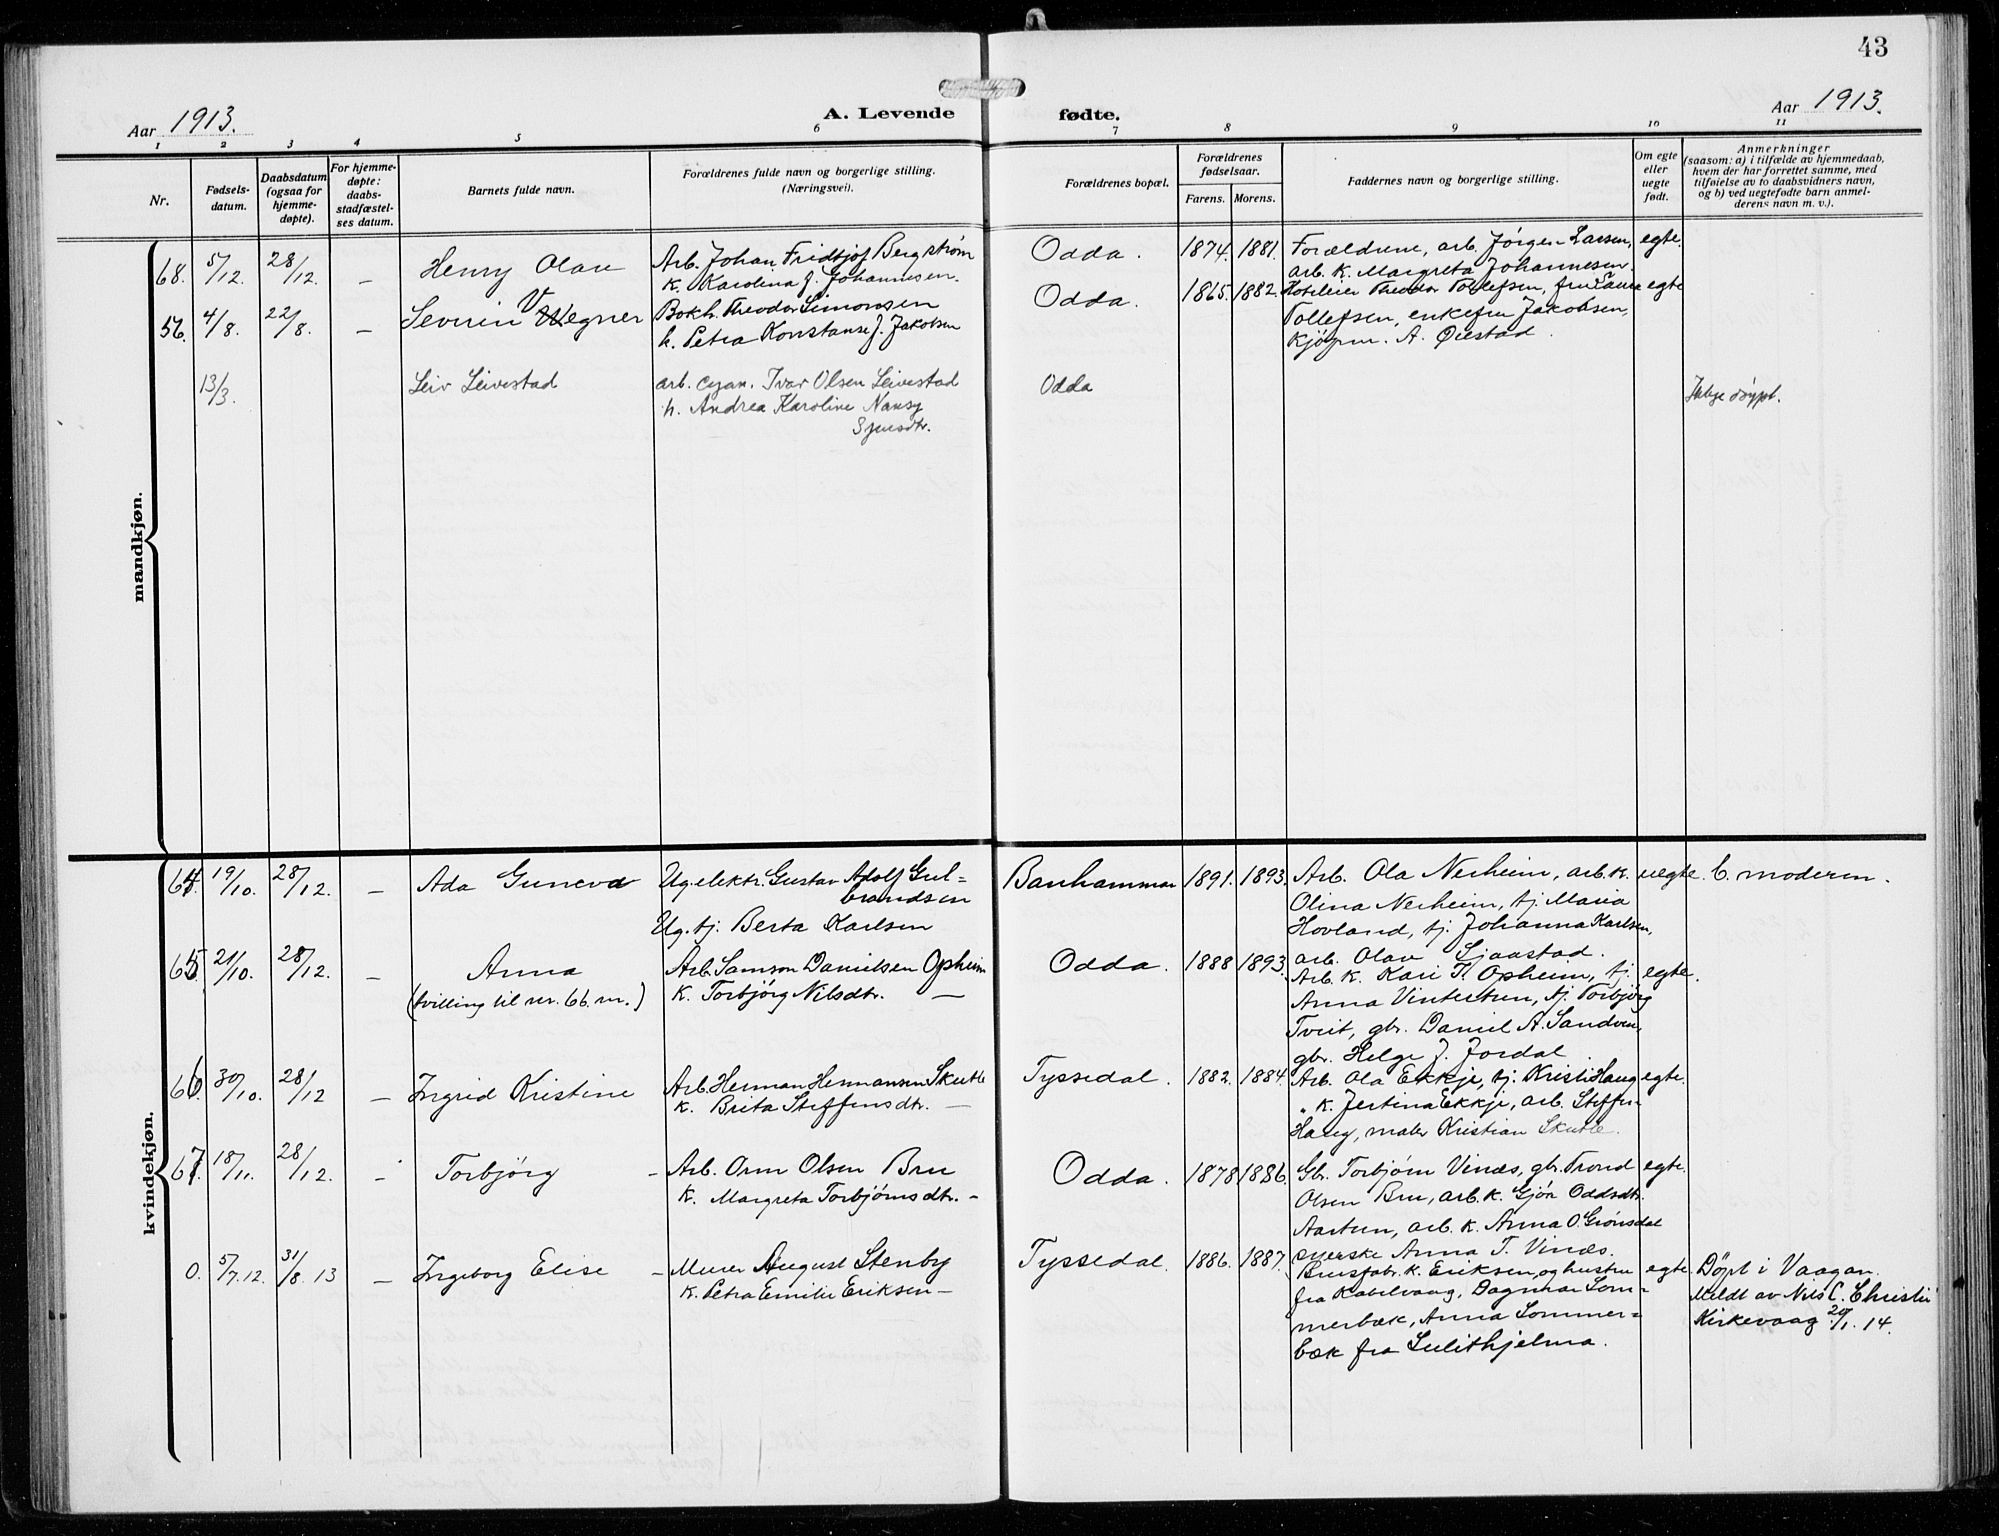 43
Aar 1913.
A. Levende fødte.
Aar 1913.
1 2 3 4 5 6 7 8 9 10 11
Nr.
Fødsels-
datum.
Daabsdatum
(ogsaa for
hjemme-
døpte).
For hjemme-
døpte:
daabs-
stadfæstel-
ses datum.
Barnets fulde navn.
Forældrenes fulde navn og borgerlige stilling.
(Næringsvei).
Forældrenes bopæl.
Forældrenes
fødselsaar.
Farens. Morens.
Faddernes navn og borgerlige stilling.
Om egte
eller
uegte
født.
Anmerkninger
(saasom: a) i tilfælde av hjemmedaab,
hvem der har forrettet samme, med
tilføielse av to daabsvidners navn,
og b) ved uegtefødte barn anmel-
derens navn m. v.).
mandkjøn.
68. 5/12. 28/12. — Henry Olav
Arb. Johan Fridtjof Bergstrøm
k. Karolina J. Johannesen.
Odda. 1874. 1881.
Forældrene, arb. Jørgen Larsen,
arb. k. Margreta Johannesen.
egte.
56. 4/8. 22/8. — Severin Wegner
Bokh. Theodor Simonsen
h. Petra Konstanse J. Jakobsen
Odda. 1865. 1882.
Hoteleier Theodor Tollefsen, fru
Tollefsen, enkefru Jakobsen,
kjøpm. A. Øiestad.
egte
13/3. Leiv Leivestad
arb. cyan. Ivar Olsen Leivestad
h. Andrea Karoline Nansy
Odda
Ikkje døypt.
kvindekjøn.
64. 19/10. 28/12. — Ada Guneva
Ug. elektr. Gustav Adolf Gul=
brandsen
Ug. tj. Berta Karlsen
Banhammar 1891. 1893.
Arb. Ola Nerheim, arb. k.
Olina Nerheim, tj. Maria
Hovland, tj. Johanna Karlsen,
arb. Olav Sjaastad.
uegte. b. moderen.
65. 21/10. 28/12. — Anna
(tvilling til nr. 66. m.)
Arb. Samson Danielsen Opheim
k. Torbjørg Nilsdtr. —
Odda. 1888 1893.
Arb. k. Kari T. Opheim, tj.
Anna Vintertun, tj. Torbjørg
Tveit, gbr. Daniel A. Sandven,
gbr. Helge J. Jordal
egte.
66. 30/10. 28/12 — Ingrid Kristine
Arb. Herman Hermansen Skutle
k. Brita Steffensdtr. —
Tyssedal. 1882. 1884.
Arb. Ola Ekkje, tj. Kristi Haug
„ k. Jertina Ekkje, arb. Steffen
Haug, maler Kristian Skutle.
egte.
67. 18/11. 28/12. — Torbjörg
— Arb. Orm Olsen Bru
k. Margreta Torbjørnsdtr. —
Odda. 1878 1886.
Gbr. Torbjørn Vinæs, gbr. Trond
Olsen Bru, arb. k. Gjøa Oddsdtr.
Aartun, arb. k. Anna O. Grønsdal
syerske Anna T. Vinæs.
egte.
0. 5/7.12. 31/8.13 — Ingeborg Elise
— Murer August Stenby
k. Petra Emilie Eriksen —
Tyssedal. 1886. 1887.
Brusfabr. k. Eriksen, og hustru
fra Kabelvaag, Dagmar Som=
merbæk, Anna Sommer=
bæk fra Sulithjelma.
egte.
Døpt i Vaagan.
Meldt av Nils C. Christie
Kirkevaag 20/1. 14.